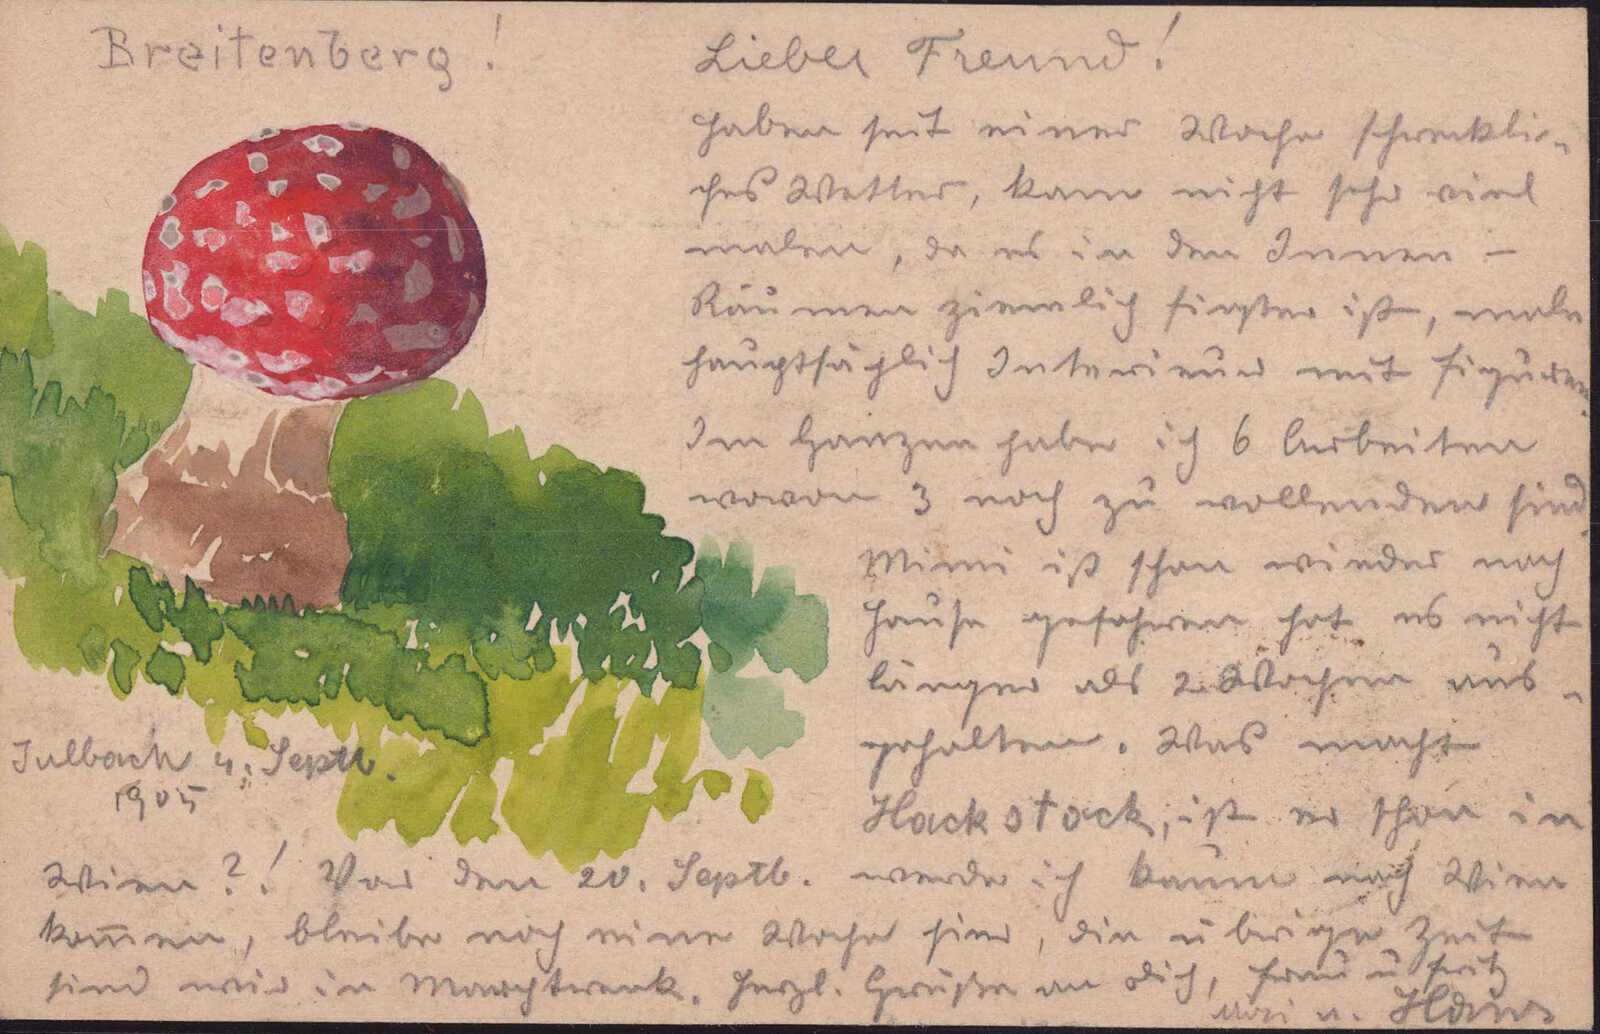 Breitenberg!
Lieber Freund!
haben seit einer Woche schreckli-
ches Wetter, kann nicht sehr viel
malen, da es in den Innen-
Räumen ziemlich finster ist, male
hauptsächlich Interieur mit Figuren.
Im Ganzen habe ich 6 Arbeiten
wovon 3 noch zu vollenden sind.
Mimi ist schon wieder nach
Hause gefahren hat es nicht
länger als 2 Wochen aus-
gehalten. Was macht
Hackstock, ist er schon in
Wien?! Vor den 20. Septb. werde ich kaum nach Wien
kom̅en, bleibe noch eine Woche hier, die übrige Zeit
sind wir in Marchtrenk. Herzl. Grüße an Dich, Frau u Fritz
u. Hans
Julbach 4. Septb.
1905